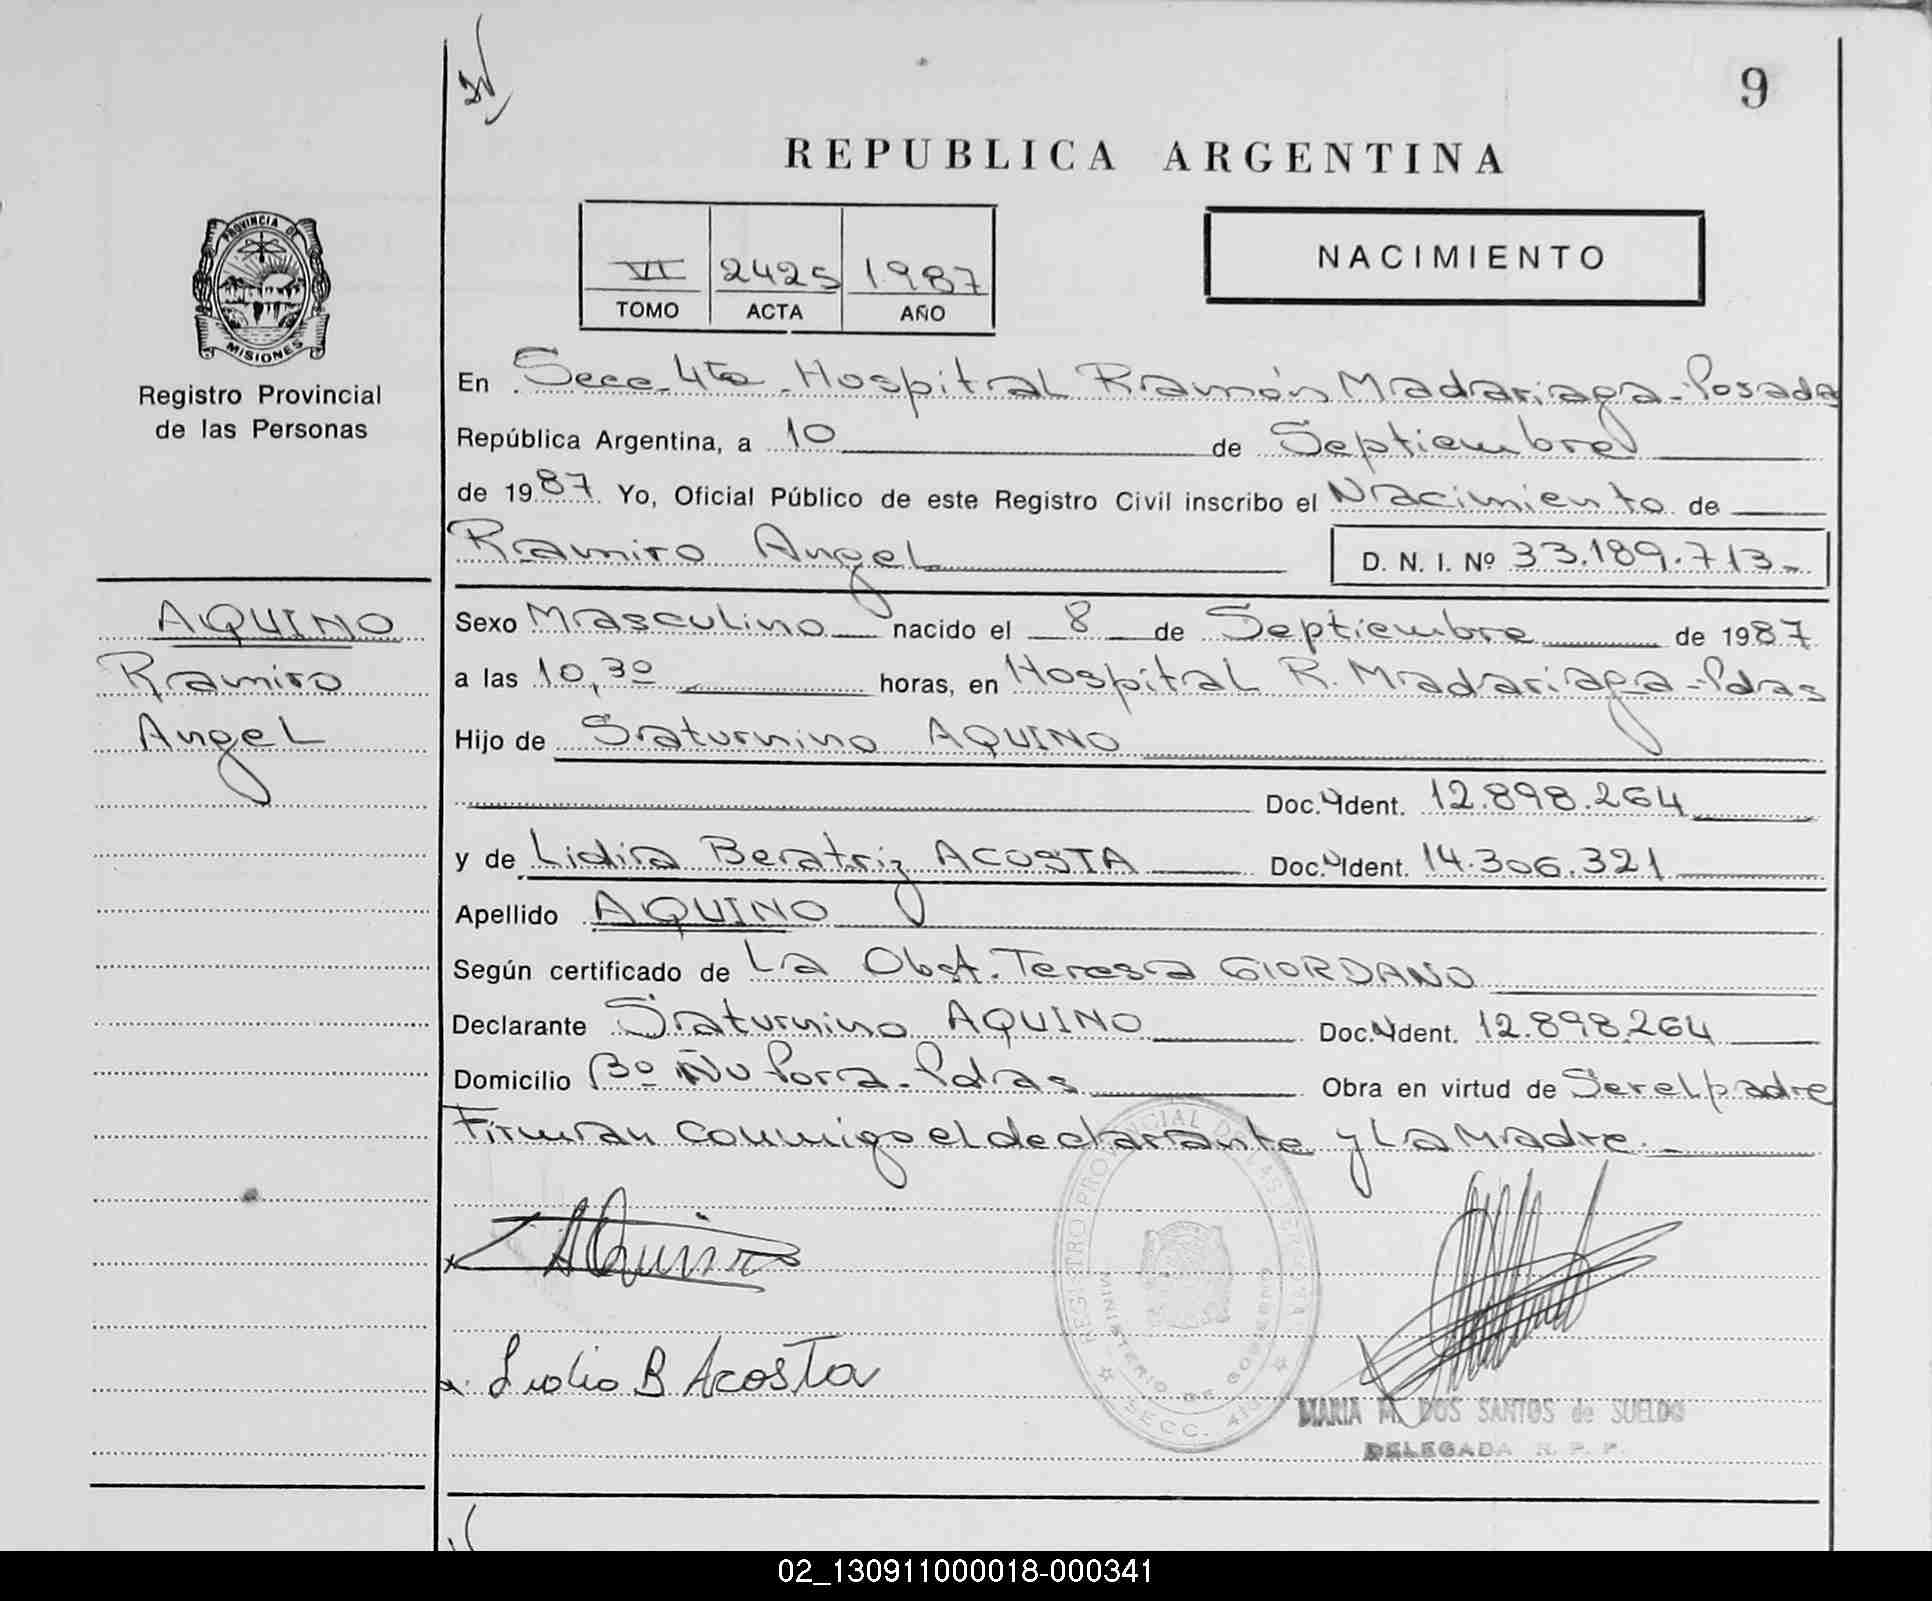 9
REPUBLICA ARGENTINA
PROVINCIA DE
MISIONES
Registro Provincial
de las Personas
VI 2425 1987
TOMO ACTA AÑO
NACIMIENTO
En Secc. 4ta. Hospital Ramón Madariaga - Posada
República Argentina, a 10 de Septiembre
de 1987 Yo, Oficial Público de este Registro Civil inscribo el Nacimiento de
Ramiro Angel D. N. I. Nº 33.189.713-
AQUINO
Ramiro
Angel
Sexo Masculino nacido el 8 de Septiembre de 1987
a las 10,30 horas, en Hospital R. Madariaga - Pdas
Hijo de Saturnino AQUINO
Doc. Ident. 12.898.264
y de Lidia Beatriz ACOSTA Doc. Ident. 14.306.321
Apellido AQUINO
Según certificado de La Obst. Teresa GIORDANO
Declarante Saturnino AQUINO Doc. Ident. 12.898.264
Domicilio Bº Ñu Pora - Pdas Obra en virtud de Ser el padre
Firman conmigo el declarante y La Madre. -
REGISTRO PROVINCIAL DE LAS PERSONAS
MINISTERIO DE GOBIERNO
SECC. 4ta
x Aquino
x. Lidia B Acosta
MARIA M. DOS SANTOS de SUELDO
DELEGADA R. P. P.
02_130911000018-000341